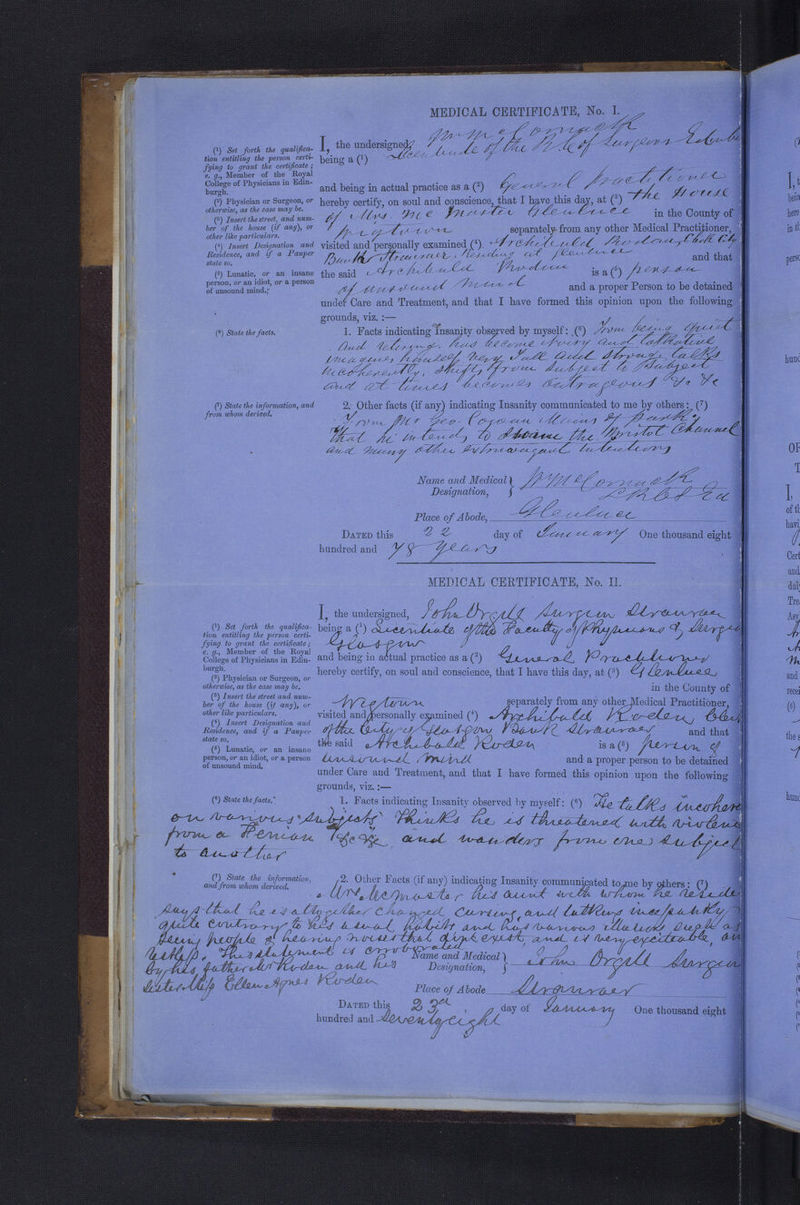 MEDICAL CERTIFICATE, No. I.
(¹) Set forth the qualifica-
tion entitling the person certi-
fying to grant the certificate;
e. g., Member of the Royal
College of Physicians in Edin-
burgh.
(²) Physician or Surgeon, or
otherwise, as the case may be.
(³) Insert the street, and num-
ber of the house (if any), or
other like particulars.
(⁴) Insert Designation and
Residence, and if a Pauper
state so.
(⁵) Lunatic, or an insane
person, or an idiot, or a person
of unsound mind.
I, the undersigned, Wm McCormack
being a (¹) Licentiate of the R C of Surgeons Edinb
and being in actual practice as a (²) General Practitioner
hereby certify, on soul and conscience, that I have this day, at (³) the House
of Mrs McMaster Glenluce in the County of
Wigtown separately from any other Medical Practitioner,
visited and personally examined (⁴) Archibald Clerk City
Bank Stranraer Residing at Glenluce and that
the said Archibald is a (⁵) person
of unsound mind and a proper Person to be detained
under Care and Treatment, and that I have formed this opinion upon the following
grounds, viz. :—
(⁶) State the facts.
1. Facts indicating Insanity observed by myself: (⁶) From being quiet
and retiring has become noisy and talkative
imagines himself very Tall and Strong talks
incoherently, shifts from subject to Subject
and at times becomes outrageous &c &c
(⁷) State the information, and
from whom derived.
2. Other facts (if any) indicating Insanity communicated to me by others: (⁷)
From Mr Geo. Mains of Park
that he intends to Swim the Bristol Channel
and many other extravagant intentions
Name and Medical Designation, Wm McCormack
LRCS Ed
Place of Abode, Glenluce
DATED this 22 day of January One thousand eight
hundred and 78 years
MEDICAL CERTIFICATE, No. II.
(¹) Set forth the qualifica-
tion entitling the person certi-
fying to grant the certificate;
e. g., Member of the Royal
College of Physicians in Edin-
burgh.
(²) Physician or Surgeon, or
otherwise, as the case may be.
(³) Insert the street and num-
ber of the house (if any), or
other like particulars.
(⁴) Insert Designation and
Residence, and if a Pauper
state so.
(⁵) Lunatic, or an insane
person, or an idiot, or a person
of unsound mind.
I, the undersigned, John Orgill Surgeon Stranraer
being a (¹) Licentiate of the Faculty of Physicians & Surgeo
Glasgow
and being in actual practice as a (²) General Practitioner
hereby certify, on soul and conscience, that I have this day, at (³) Glenluce
in the County of
Wigtown separately from any other Medical Practitioner,
visited and personally examined (⁴) Archibald Roden Cler
of the City of Glasgow Bank Stranraer and that
the said Archibald Roden is a (⁵) person of
unsound mind and a proper person to be detained
under Care and Treatment, and that I have formed this opinion upon the following
grounds, viz. :—
(⁶) State the facts.
1. Facts indicating Insanity observed by myself: (⁶) He talks incohere
on various subjects thinks he is threatened with violence
from a Fenian and wanders from one subject
to another
(⁷) State the information,
and from whom derived.
2. Other Facts (if any) indicating Insanity communicated to me by others: (⁷)
Mrs McMaster his aunt with whom he reside
says that he is altogether changed cursing, and talking incessantly
quite contrary to his usual habits and has various illusions such as
seeing people & hearing noises that dont exist, and is very exciteable, an
restless. This statement is corroborated
by his father Mr Roden and his
sister Miss Ellen Agnes Roden
Name and Medical Designation, John Orgill Surgeon
Place of Abode Stranraer
DATED this 23d day of January One thousand eight
hundred and Seventy eight